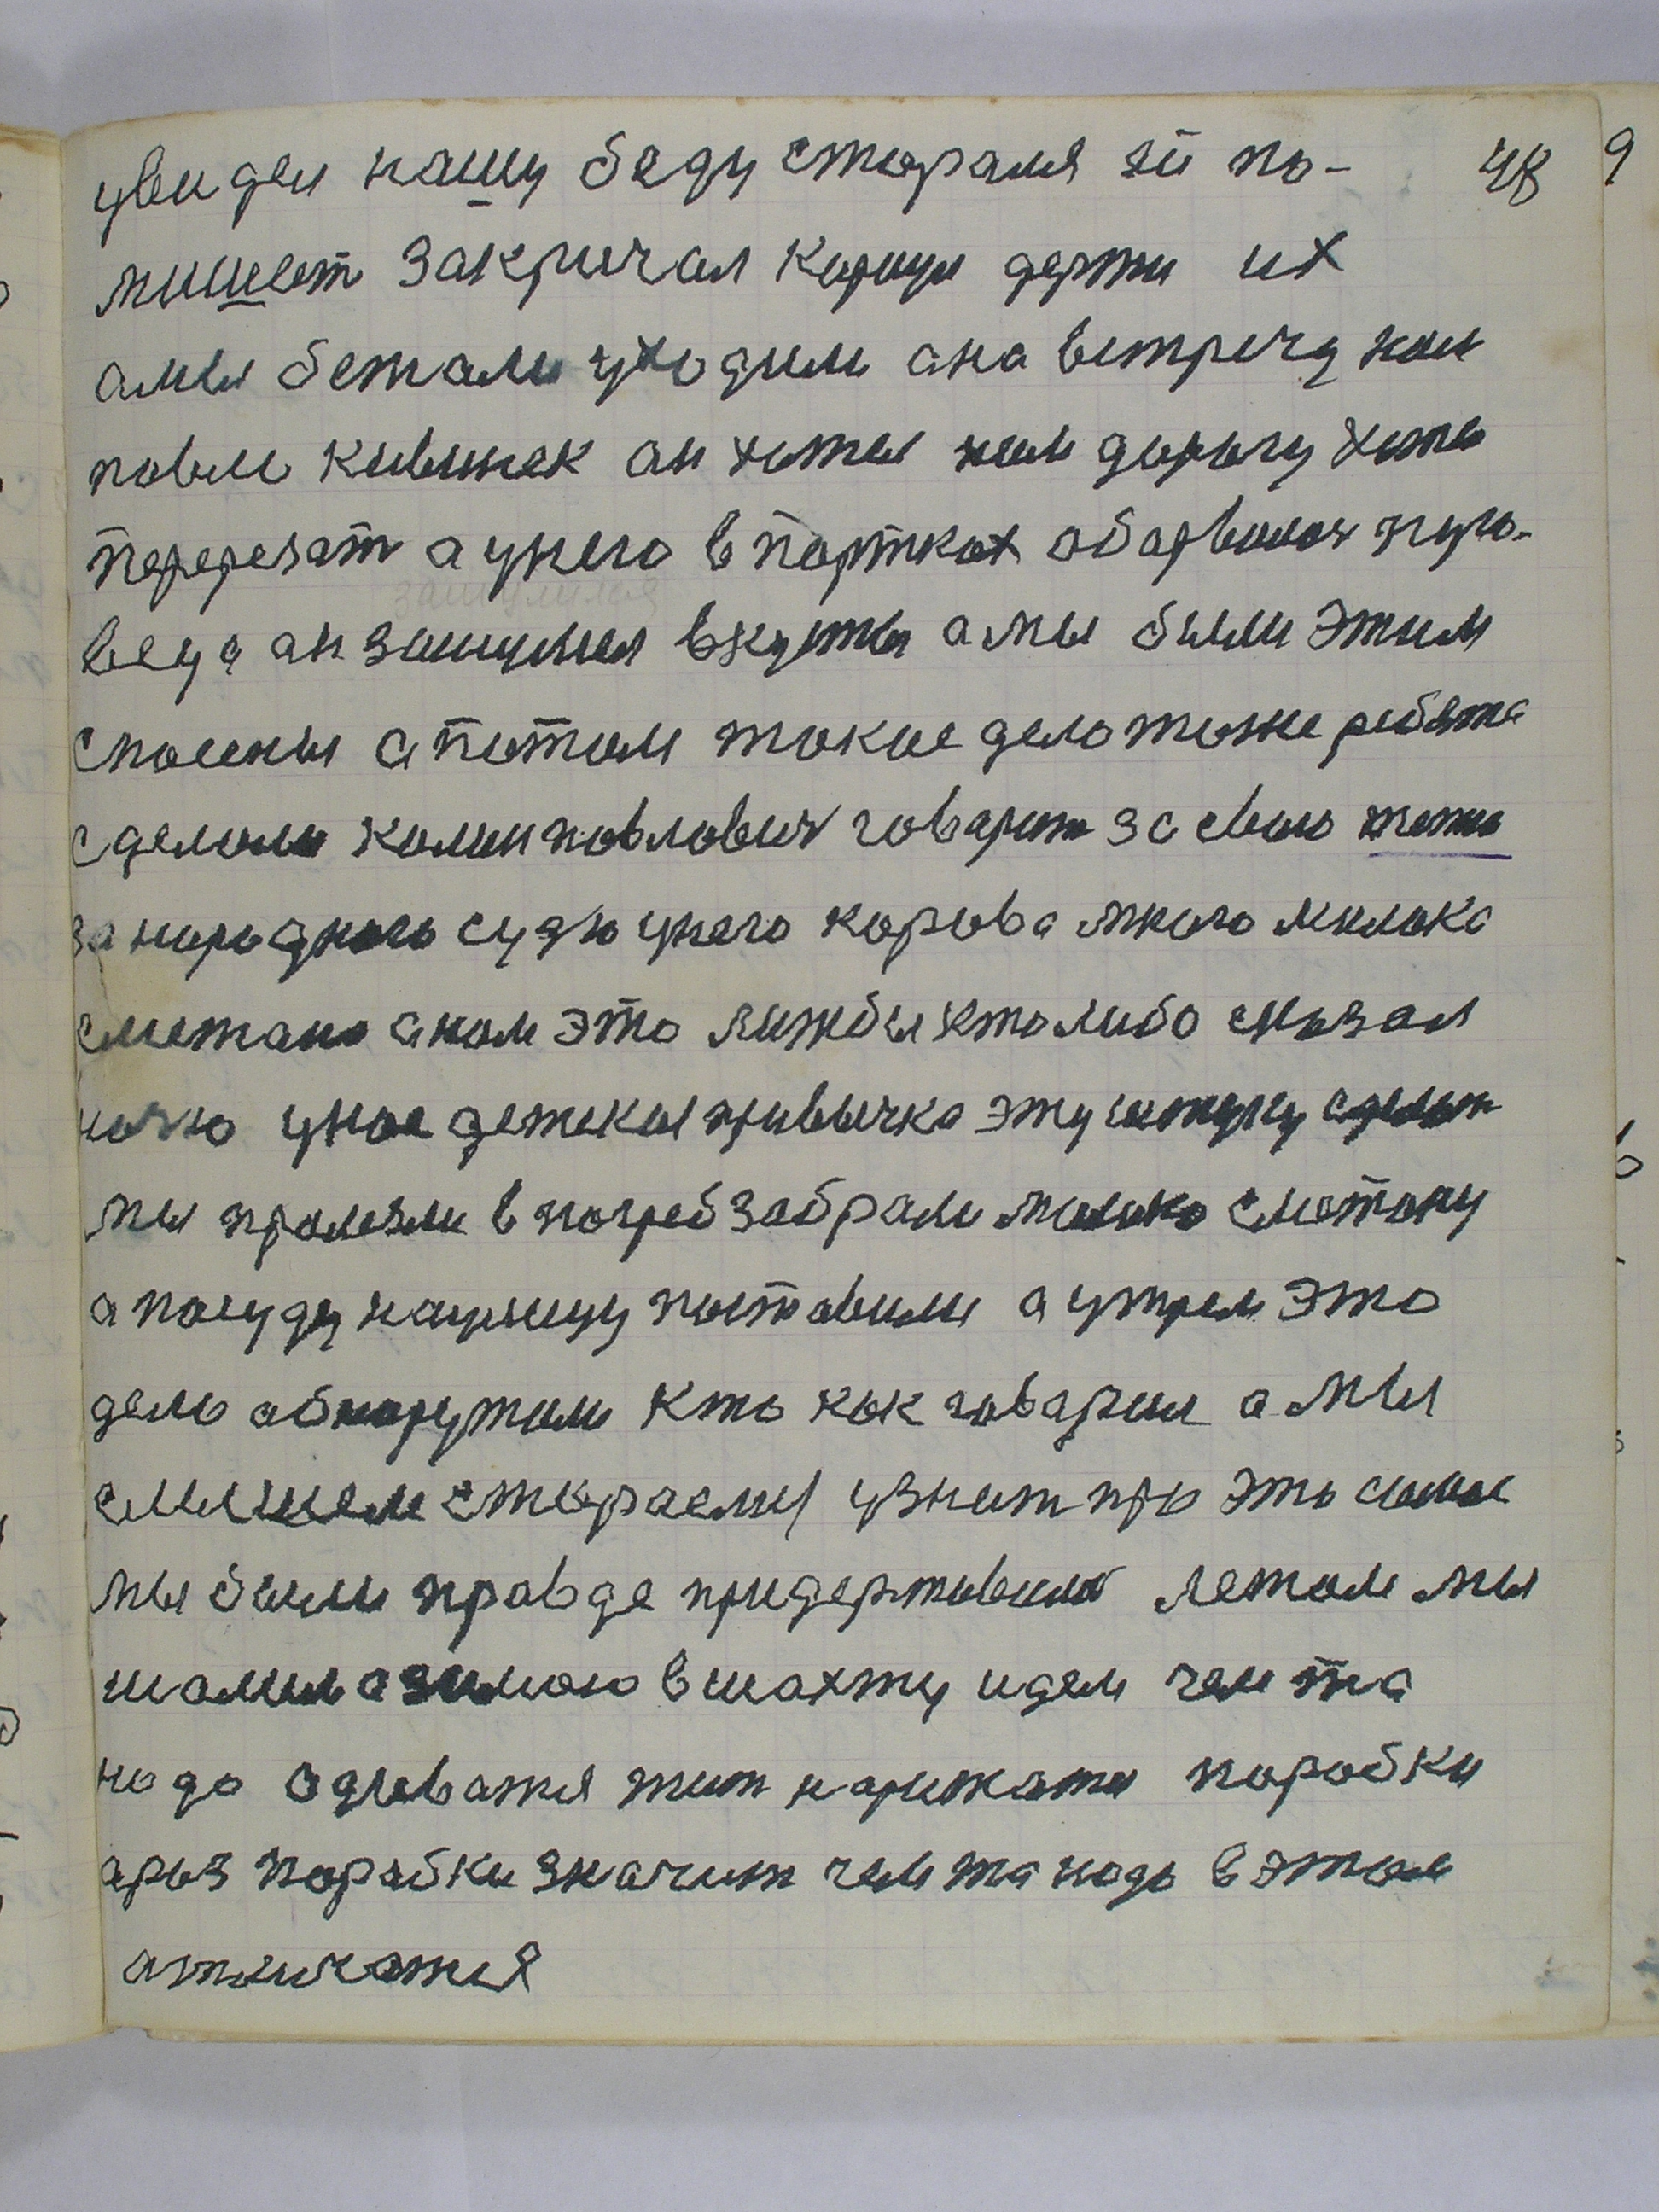 увидел нашу беду старался ей по- 48
мишест закричал карнул держи их
амы бежали уходили ана встречу нам
павел кивинек ан хотел нам дорогу хотел
перерезат аунего в портках обарвалась пуго-
вец а ан зашумел вкусты амы были этим
спасены апотом такое дело тоже ребята
сделали павлович говарит за свою
за народного судю унего корова много молока
сметана анам это лижбы ктолибо сказал
ночю унас детская привычка эту штуку сделат
мы пролезли в погреб забрали молоко сметану
апосуду наулицу поставили аутрам это
дело обнаружили кто как говарил а мы
слышем стараемся узнат про это самое
мы были правде придерживалис летом мы
шалим азимою вшахту идем чем та
надо одеватся жит наружаты поробки
араз поробки значит чем та надо вэтом
атличатся